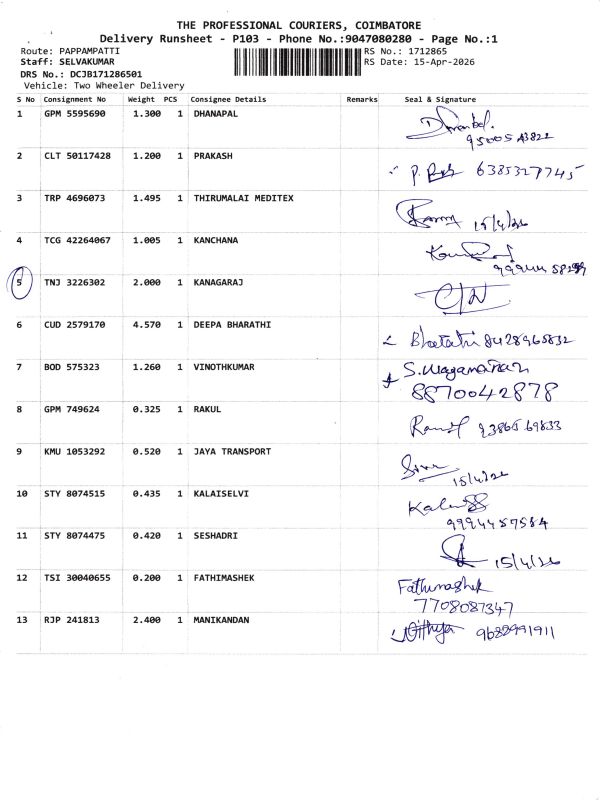 THE PROFESSIONAL COURIERS, COIMBATORE
Delivery Runsheet - P103 - Phone No.:9047080280 - Page No.:1
Route: PAPPAMPATTI RS No.: 1712865
Staff: SELVAKUMAR RS Date: 15-Apr-2026
DRS No.: DCJB171286501
Vehicle: Two Wheeler Delivery
S No Consignment No Weight PCS Consignee Details Remarks Seal & Signature
1 GPM 5595690 1.300 1 DHANAPAL
2 CLT 50117428 1.200 1 PRAKASH 6385327745
3 TRP 4696073 1.495 1 THIRUMALAI MEDITEX 15/4/26
4 TCG 42264067 1.005 1 KANCHANA
5 TNJ 3226302 2.000 1 KANAGARAJ
6 CUD 2579170 4.570 1 DEEPA BHARATHI Bharathi 8428965832
7 BOD 575323 1.260 1 VINOTHKUMAR
8870042878
8 GPM 749624 0.325 1 RAKUL
9 KMU 1053292 0.520 1 JAYA TRANSPORT
15/4/26
10 STY 8074515 0.435 1 KALAISELVI
9994457584
11 STY 8074475 0.420 1 SESHADRI 15/4/26
12 TSI 30040655 0.200 1 FATHIMASHEK Fathimashek
7708087347
13 RJP 241813 2.400 1 MANIKANDAN 9688991911